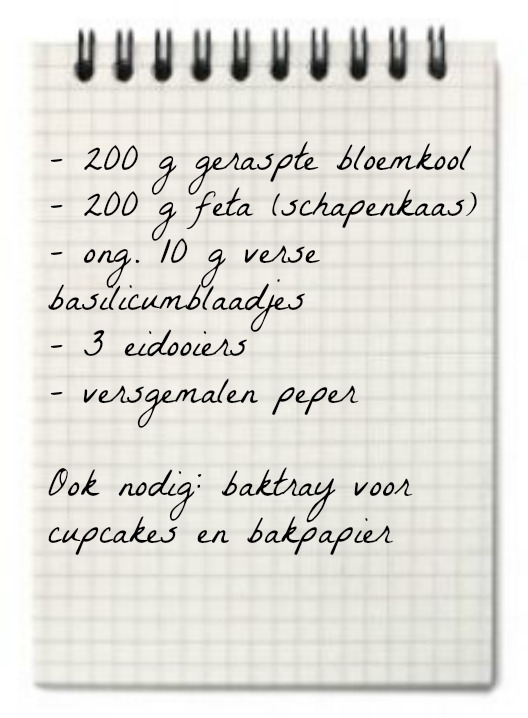 - 200 g geraspte bloemkool
- 200 g feta (schapenkaas)
- ong. 10 g verse
basilicumblaadjes
- 3 eidooiers
- versgemalen peper
Ook nodig: baktray voor
cupcakes en bakpapier